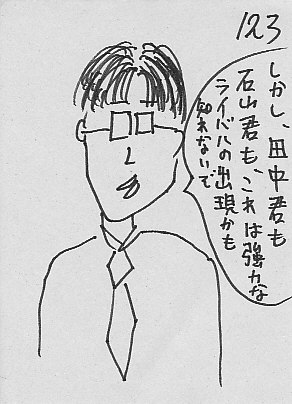 123
しかし、田中君も
石山君も、これは強力な
ライバルの出現かも
知れないで